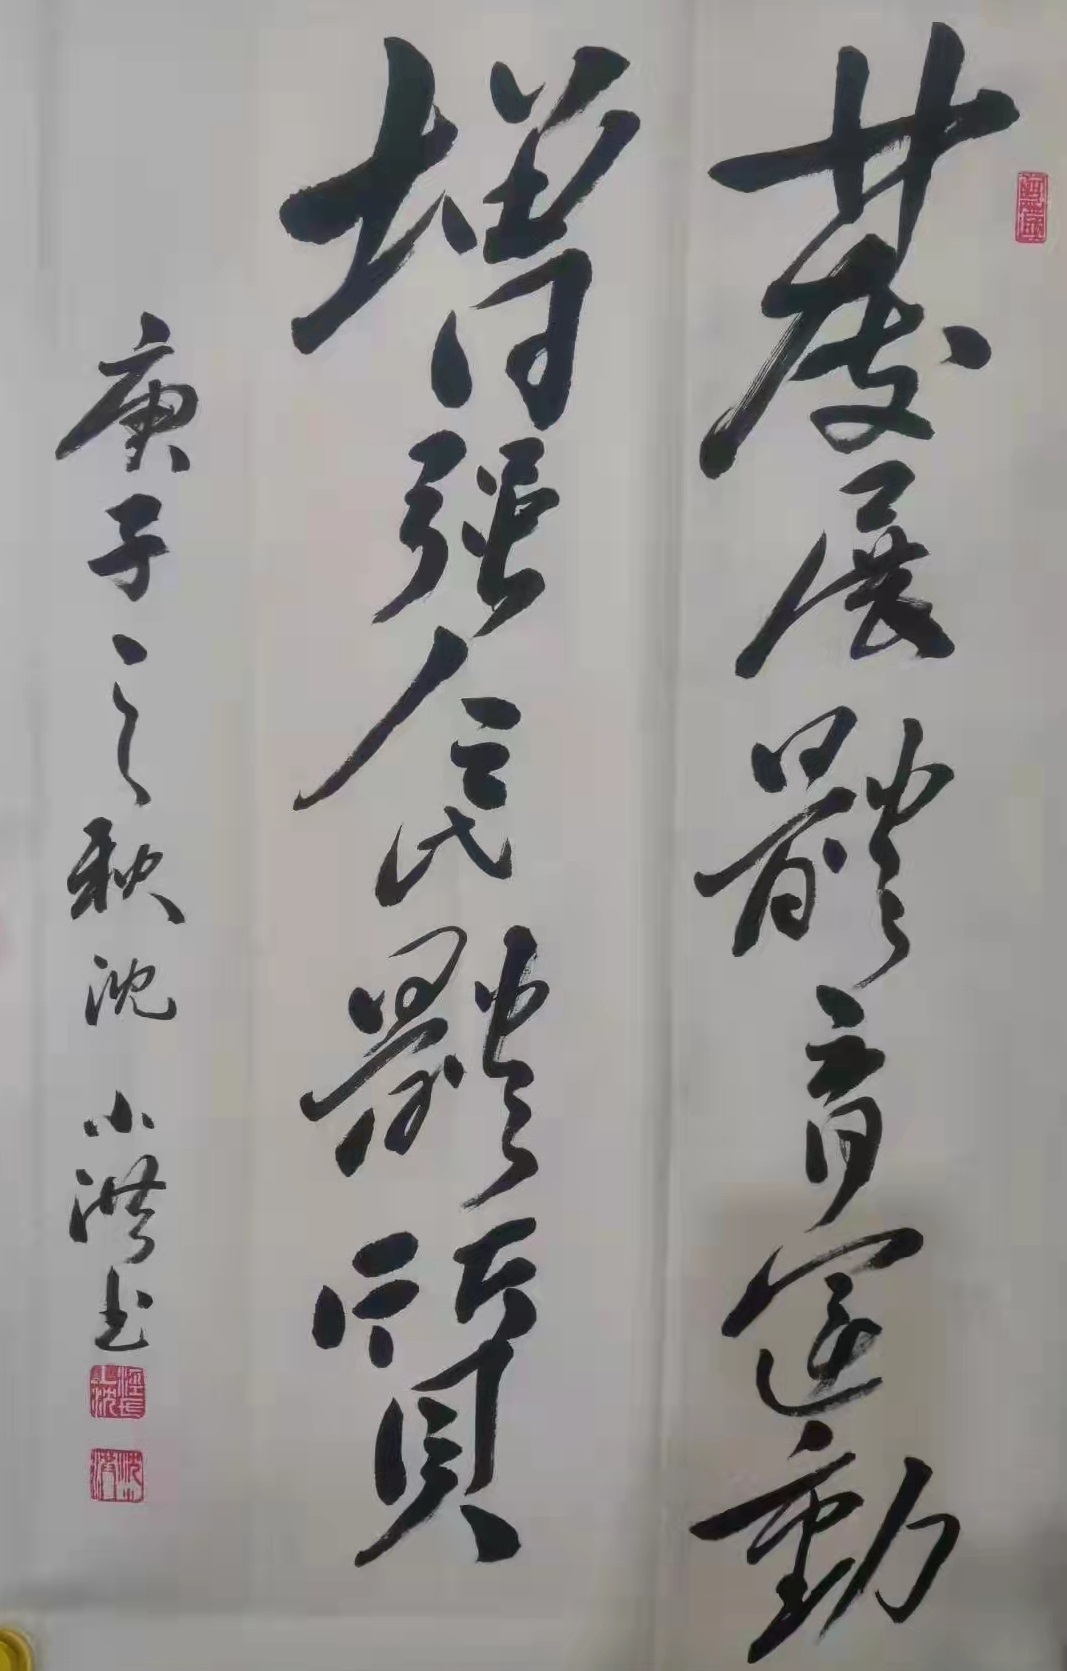 發展體育運動
增强人民體質
庚子之秋沈小洪书